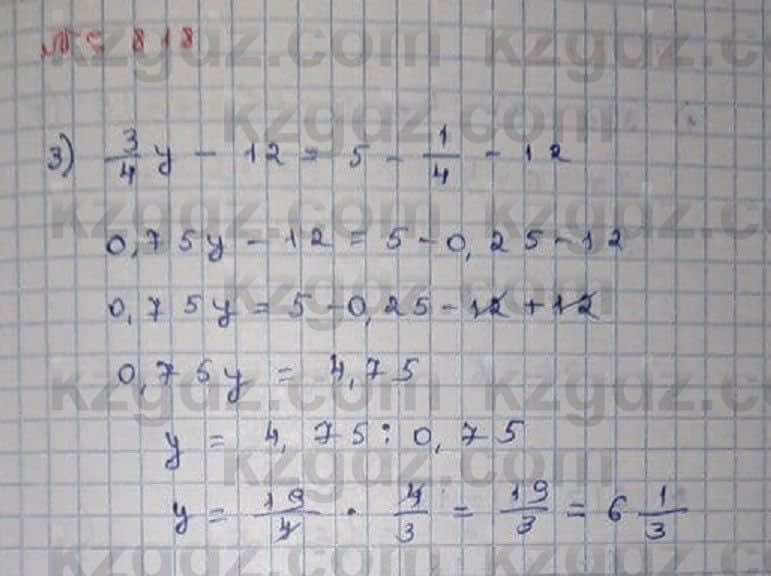 № 818
kzgdz.com kzgdz.com
kzgdz.com
3) 3/4 y - 12 = 5 - 1/4 - 12
kzgdz.com kzgdz.com
0,75y - 12 = 5 - 0,25 - 12
kzgdz.com
0,75y = 5 - 0,25 - 12 + 12
kzgdz.com kzgdz.com
0,75y = 4,75
y = 4,75 : 0,75
kzgdz.com
y = 19/4 · 4/3 = 19/3 = 6 1/3
kzgdz.com kzgdz.com